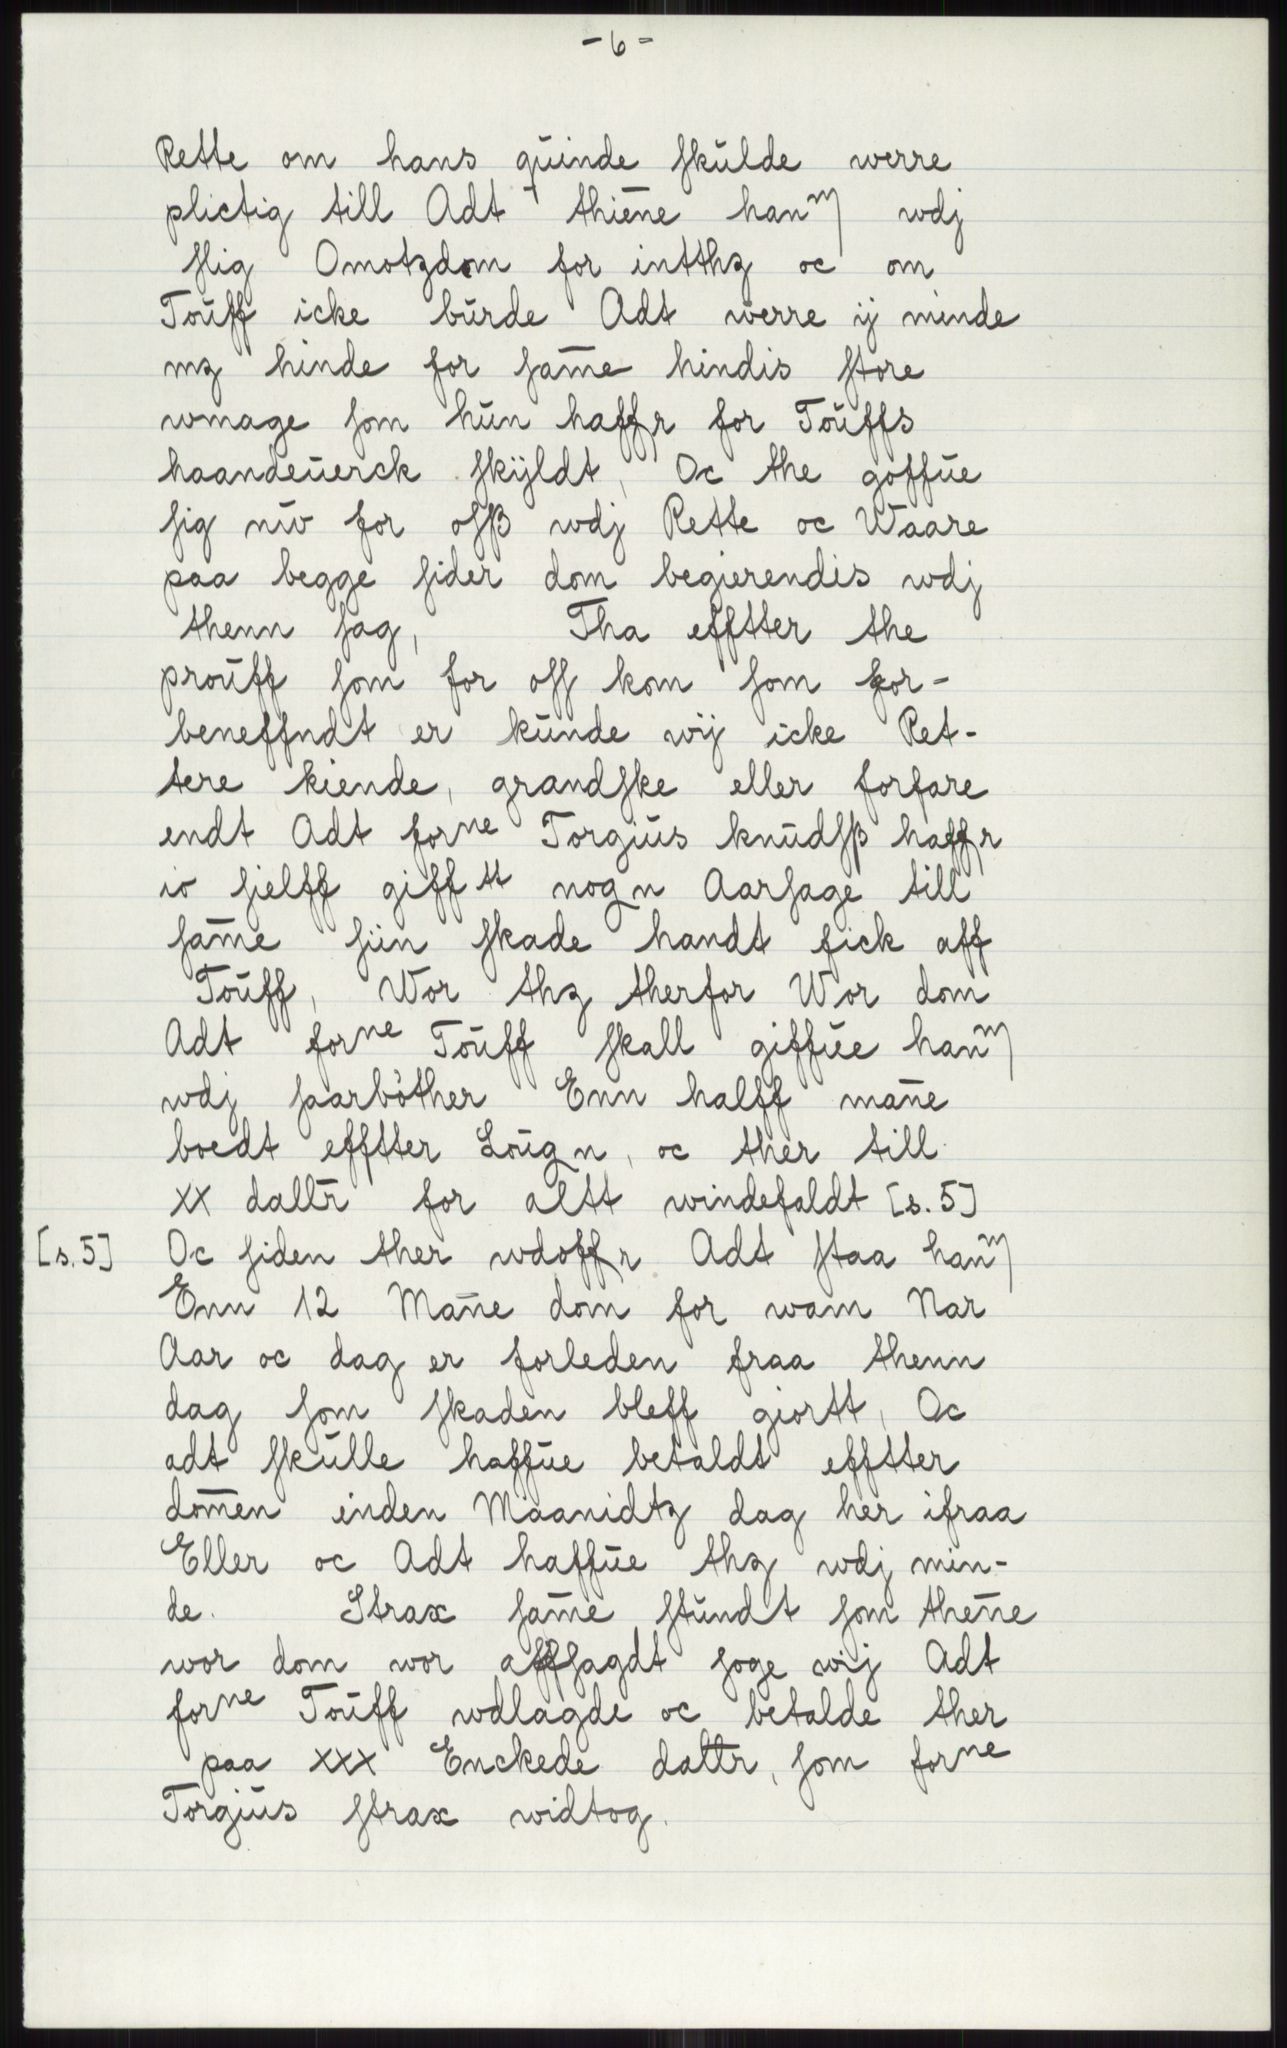 - 6 -
Rette om hans quinde skulde werre
plictig till Adt thiene hanm wdj
slig Omotzdom for intthz oc om
Touff icke burde Adt werre ij minde
mz hinde for same hindis store
wmage som hun haffr for Touffs
haandeuerck skyldt, Oc the goffue
sig nw for osß wdj Rette oc Waare
paa begge sider dom begierendis wdj
thenn sag, Tha efftter the
prouff som for oss kom som for-
beneffndt er kunde wij icke Ret-
tere kiende, grandske eller forfare
endt Adt forne Torgius knudsß haffr
io sielff giffett nogn Aarsage till
same siin skade handt fick aff
Touff, Wor thz therfor Wor dom
Adt forne Touff skall giffue hanm
wdj saarböther Enn halff mane
boedt efftter Lougn, oc ther till
xx dallr for altt windefaldt [s. 5]
[s. 5] Oc siden ther wdoffr Adt staa hanm
Enn 12 Mane dom for wam Nar
Aar oc dag er forleden fraa thenn
dag som skaden bleff giortt, Oc
adt skulle haffue betaldt efftter
domen inden Maanidtz dag her ifraa
Eller oc Adt haffue thz wdj min-
de. Strax same stundt som thene
wor dom wor affsagdt soge wij Adt
forne Touff wdlagde oc betalde ther
paa xxx Enckede daltr, som forne
Torgius strax widtog.